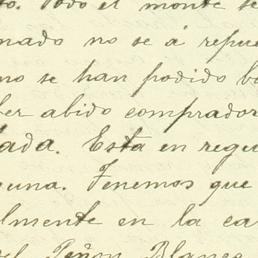 to. Todo el monte se
nado no se á repue
no se han podido b
er abido comprador
ada. Esta en regu
guna. Tenemos que
lmente en la ca
el Peñon Blanco